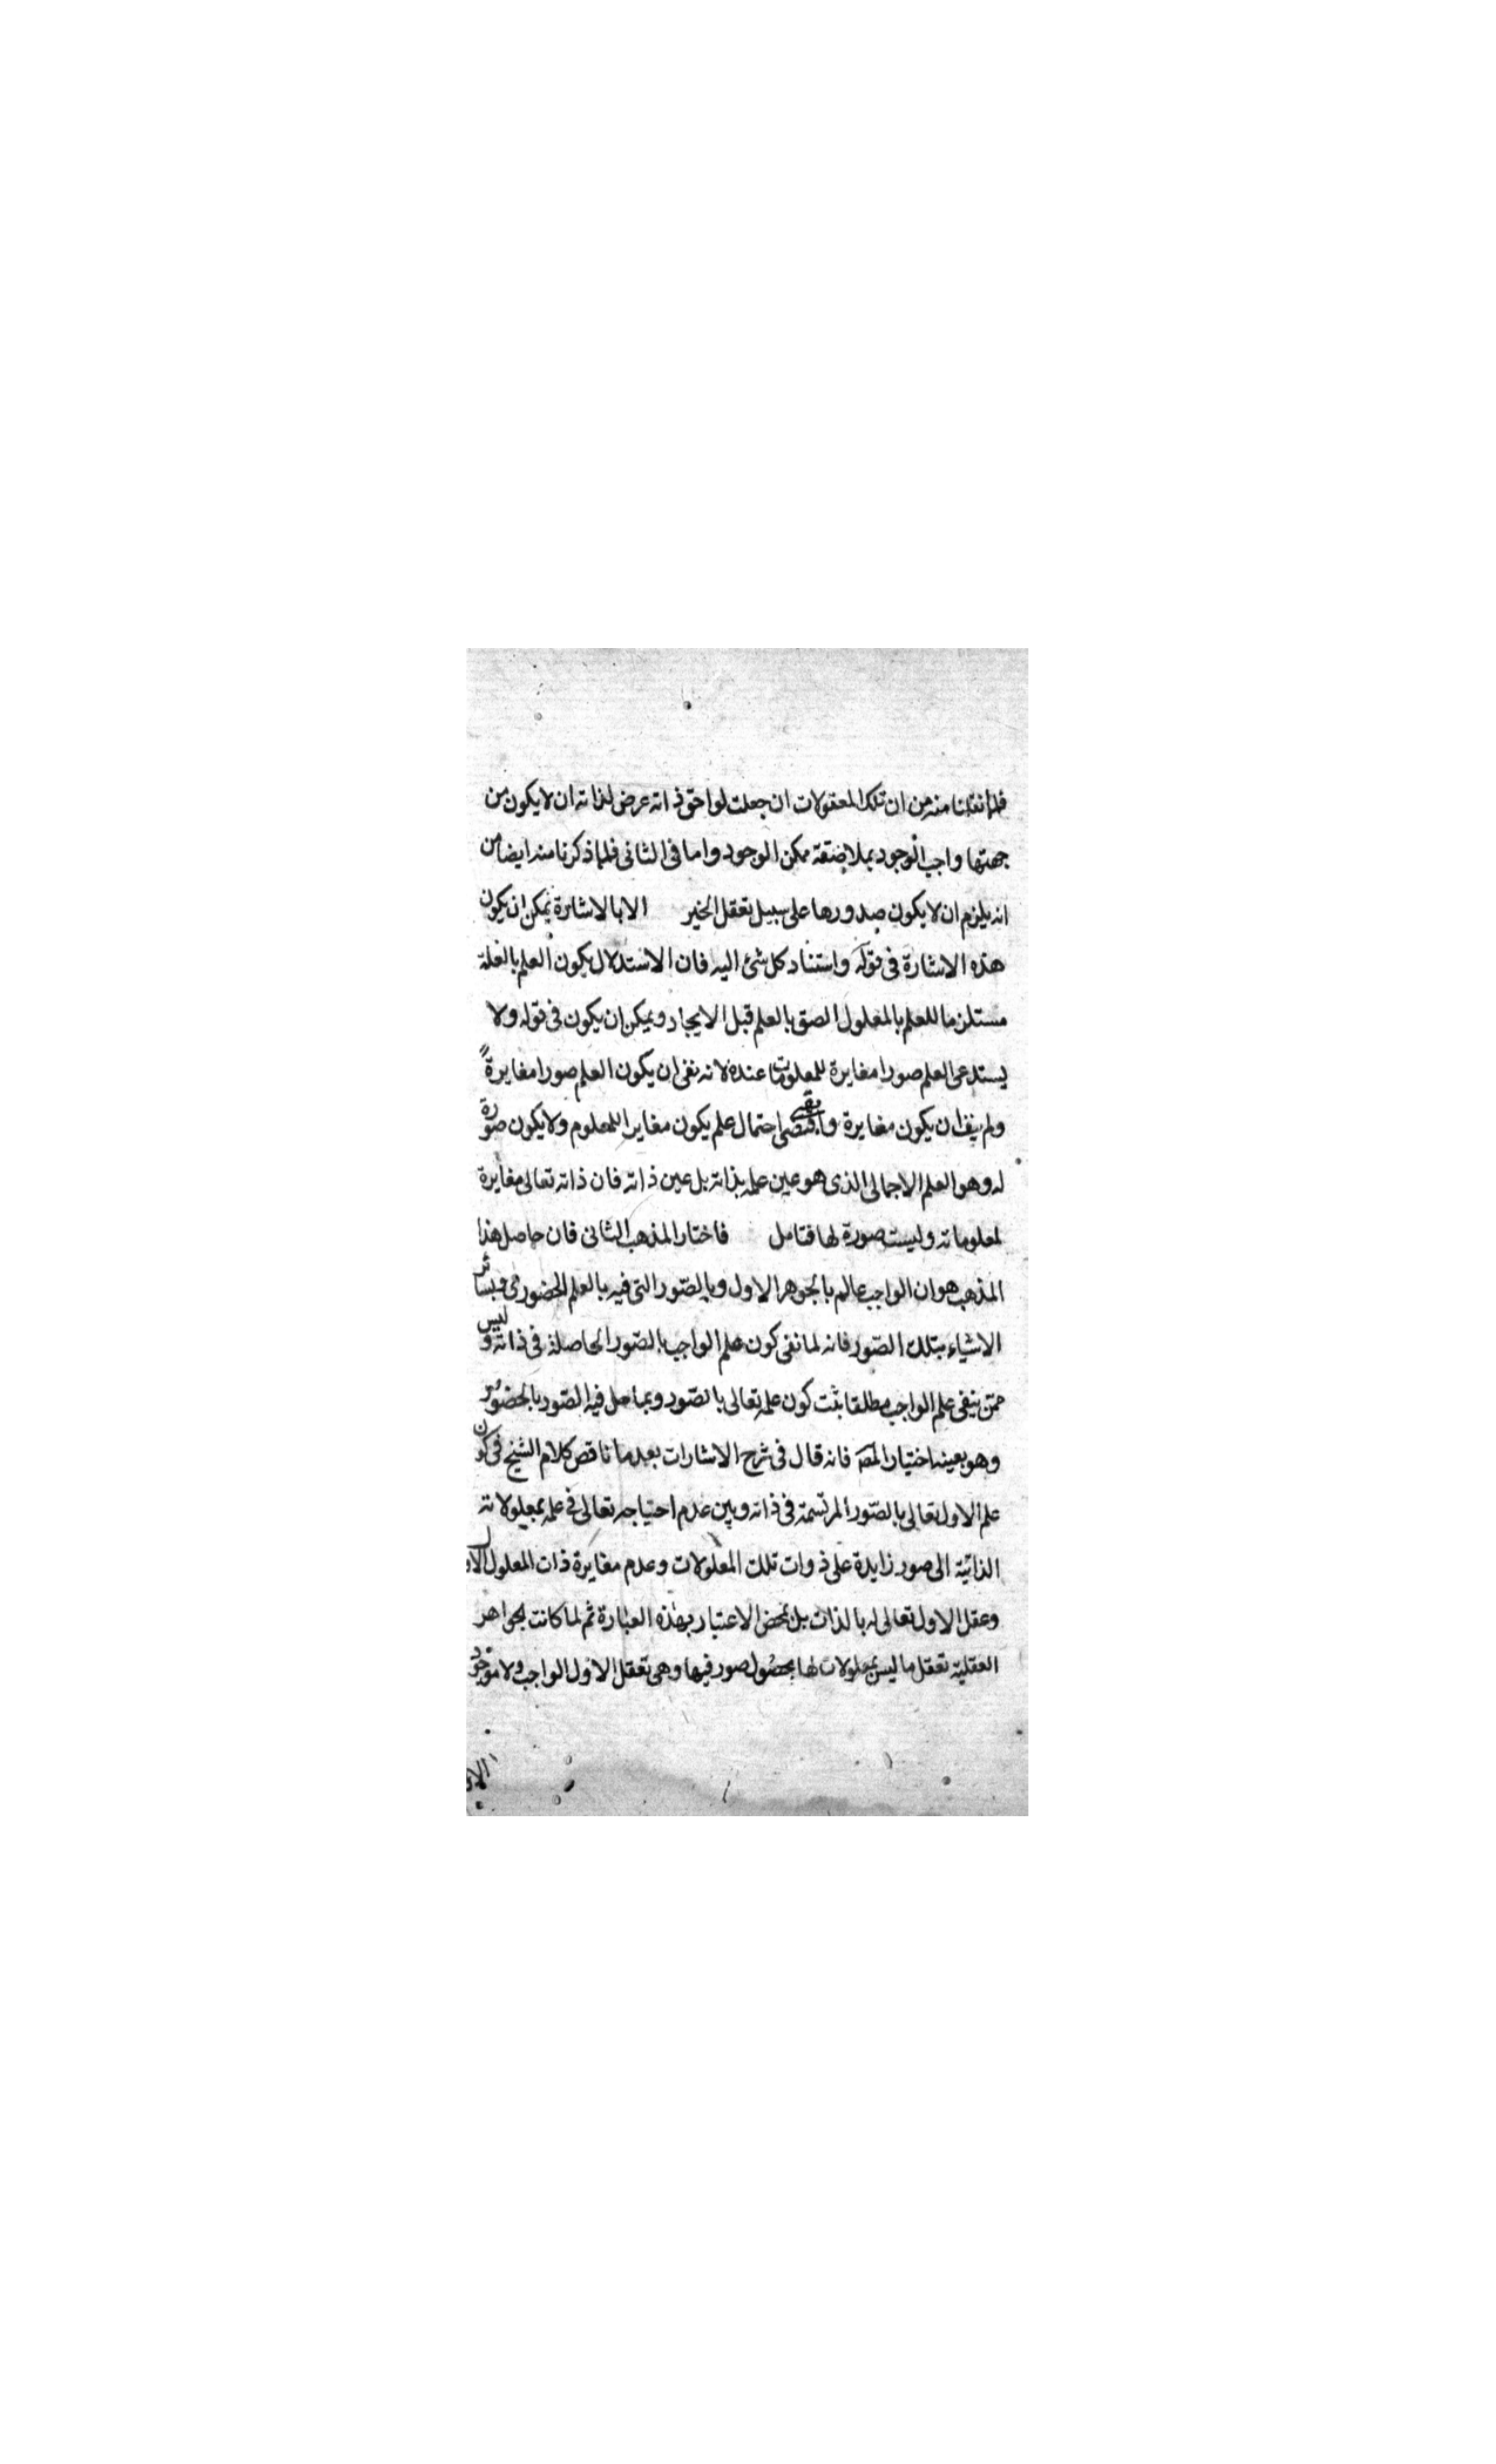 فلما نقلنا منه من ان تلك المعقولات ان جعلت لواحق ذاته عرض لذاته ان لا يكون من
جهتها واجب الوجود بملاصقة ممكن الوجود واما فى الثانى فلما ذكرنا منه ايضا من
انه يلزم ان لا يكون صدورها على سبيل تعقل الخير الا بالاشارة يمكن ان يكون
هذه الاشارة فى قوله واستناد كل شئ اليه فان الاستدلال بكون العلم بالعلة
مستلزما للعلم بالمعلول الصق بالعلم قبل الايجاد ويمكن ان يكون فى قوله ولا
يستدعى العلم صورا مغايرة للمعلومات عنده لانه نفى ان يكون العلم صورا مغايرة
ولم ينف ان يكون مغايرة وا بقى احتمال علم يكون مغايرا للمعلوم ولا يكون صورة
له وهو العلم الاجمالى الذى هو عين علمه بذاته بل عين ذاته فان ذاته تعالى مغايرة
لمعلوماته وليست صورة لها فتامل فاختار المذهب الثانى فان حاصل هذا
المذهب هو ان الواجب عالم بالجوهر الاول وبالصور التى فيه بالعلم الحضورى وبسائر
الاشياء بتلك الصور فانه لما نفى كون علم الواجب بالصور الحاصلة فى ذاته وليس
ممن ينفى علم الواجب مطلقا بثت كون علمه تعالى بالصور وبما حل فيه الصور بالحضور
وهو بعينه اختيار المص فانه قال فى شرح الاشارات بعد ما ناقص كلام الشيخ فى كون
علم الاول تعالى بالصور المرتسمة فى ذاته وبين عدم احتياجه تعالى فى علمه بمعلولاته
الذاتية الى صور زايدة على ذوات تلك المعلولات وعدم مغايرة ذات المعلول الاول
وعقل الاول تعالى له بالذات بل بمحض الاعتبار بهذه العبارة ثم لما كانت الجواهر
العقلية تعقل ما ليس بمعلولات لها بحصول صور فيها وهى تعقل الاول الواجب ولا موجود